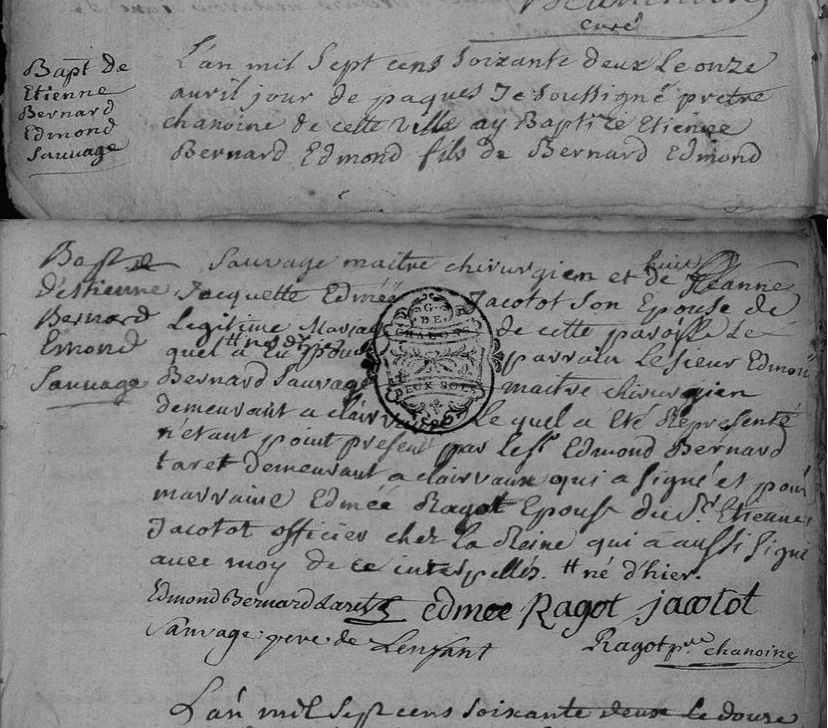 curé
Bapt de
Etienne
Bernard
Edmond
Sauvage
L'an mil sept cens soixante deux Le onze
avril jour de paques Je soussigné pretre
chanoine de cette Ville ay Baptizé Etienne
Bernard Edmond fils de Bernard Edmond
Bapt
d'Estienne
Bernard
Emond
Sauvage
Sauvage maitre chirurgien et de Jeanne
Jacquette Edmée Jacotot Son Epouse de
Legitime Mariag de cette paroisse Le
quel a Eu pour parrain Le sieur Edmon
Bernard Sauvage maitre chirurgien
demeurant a clairvaux Le quel a Eté Representé
n'étant point present par Le sr Edmond Bernard
taret demeurant a clairvaux qui a signé et pour
marraine Edmée Ragot Epouse du Sr Etienne
Jacotot officier chez La Reine qui a aussi signé
avec moy de ce interpellés. # né d'hier.
Edmond Bernard taret edmée Ragot jacotot
Sauvage pere de Lenfant Ragot ptre chanoine
L'an mil sept cens soixante deux le douze
G. DE
DEUX SOLS